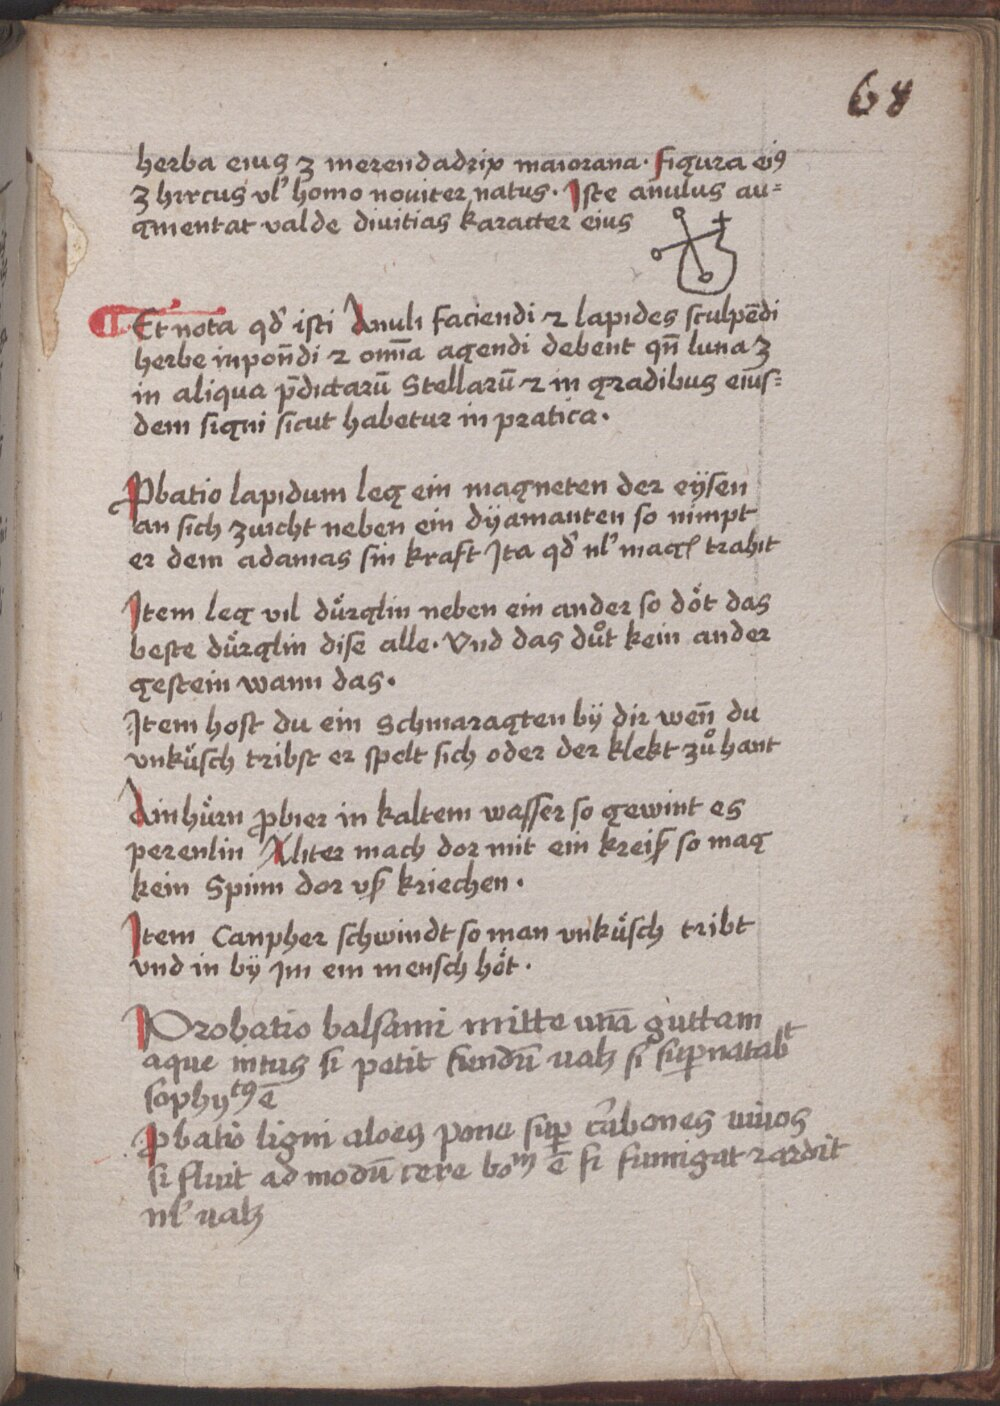 68
herba eius ʒ merendadrix maiorana · figura eiꝰ
ʒ hircus vl' homo noviter natus · Iste anulus au⸗
gmentat valde divitias karacter eius
Et nota qđ isti Anuli faciendi ⁊ lapides sculpēdi
herbe inpon̄di ⁊ om̄ia agendi debent qn̄ luna ʒ
in aliqua p̄dictarū Stellarū ⁊ in gradibus eius⸗
dem signi sicut habetur in pratica ·
Ꝓbatio lapidum leg ein magneten der eÿsen
an sich zuicht neben ein dÿamanten so nimpt
er dem adamas sin kraft Ita qđ nl' magꝭ trahit
Item leg vil duͤrglin neben ein ander so doͤt das
beste duͤrglin dise alle · Vnd das duͦt kein ander
gestein wann das ·
Item host du ein Schmaragten bÿ dir wen̄ du
vnkuͤsch tribst er spelt sich oder der klekt zuͦ hant
Ainhuͤrn ꝓbier in kaltem wasser so gewint es
perenlin Aliter mach dor mit ein kreiß so mag
kein Spinn dor vß kriechen ·
Item Canpher schwindt so man vnkuͤsch tribt
vnd in bÿ im ein mensch hoͤt ·
Probatio balsami mitte unā guttam
aque intus si petit fundū ualꝫ si suꝑnatabᵗ
sophyᵗꝰ ē
Ꝓbatio ligni aloes pone suꝑ cͬbones uivos
si fluit ad modū cere boᵐ ē si fumigat ⁊ ardit
nl' ualꝫ